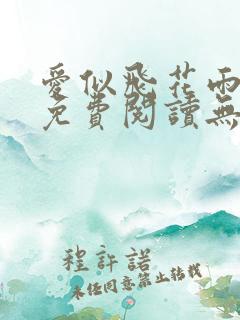 愛似飛花雨
免費閱讀無
程許諾
未经同意禁止转载